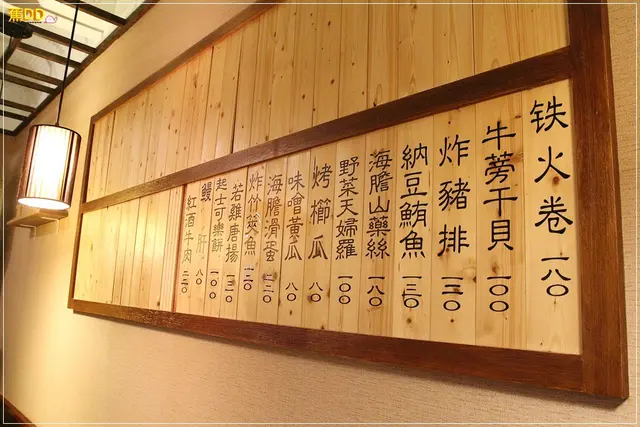 蕉DD
铁火卷 一八〇
牛蒡干貝 一〇〇
炸豬排 一三〇
納豆鮪魚 一三〇
海膽山藥絲 一八〇
野菜天婦羅 一〇〇
烤櫛瓜 八〇
味噌黃瓜 八〇
海膽滑蛋 一二〇
炸竹筴魚 一二〇
若雞唐揚 一三〇
起士可樂餅 一〇〇
鰻肝 八〇
紅酒牛肉 二二〇